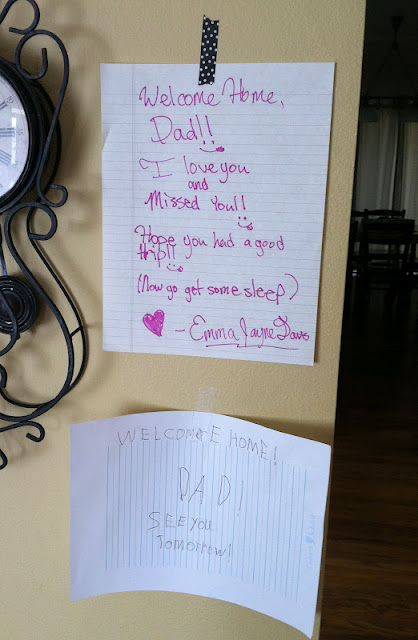 Welcome Home,
Dad!!
I love you
and
Missed You!!
Hope you had a good
trip!!
(Now go get some sleep)
- Emma Jayne Davs
WELCOME HOME!
DAD!
SEE YOU
Tomorrow!